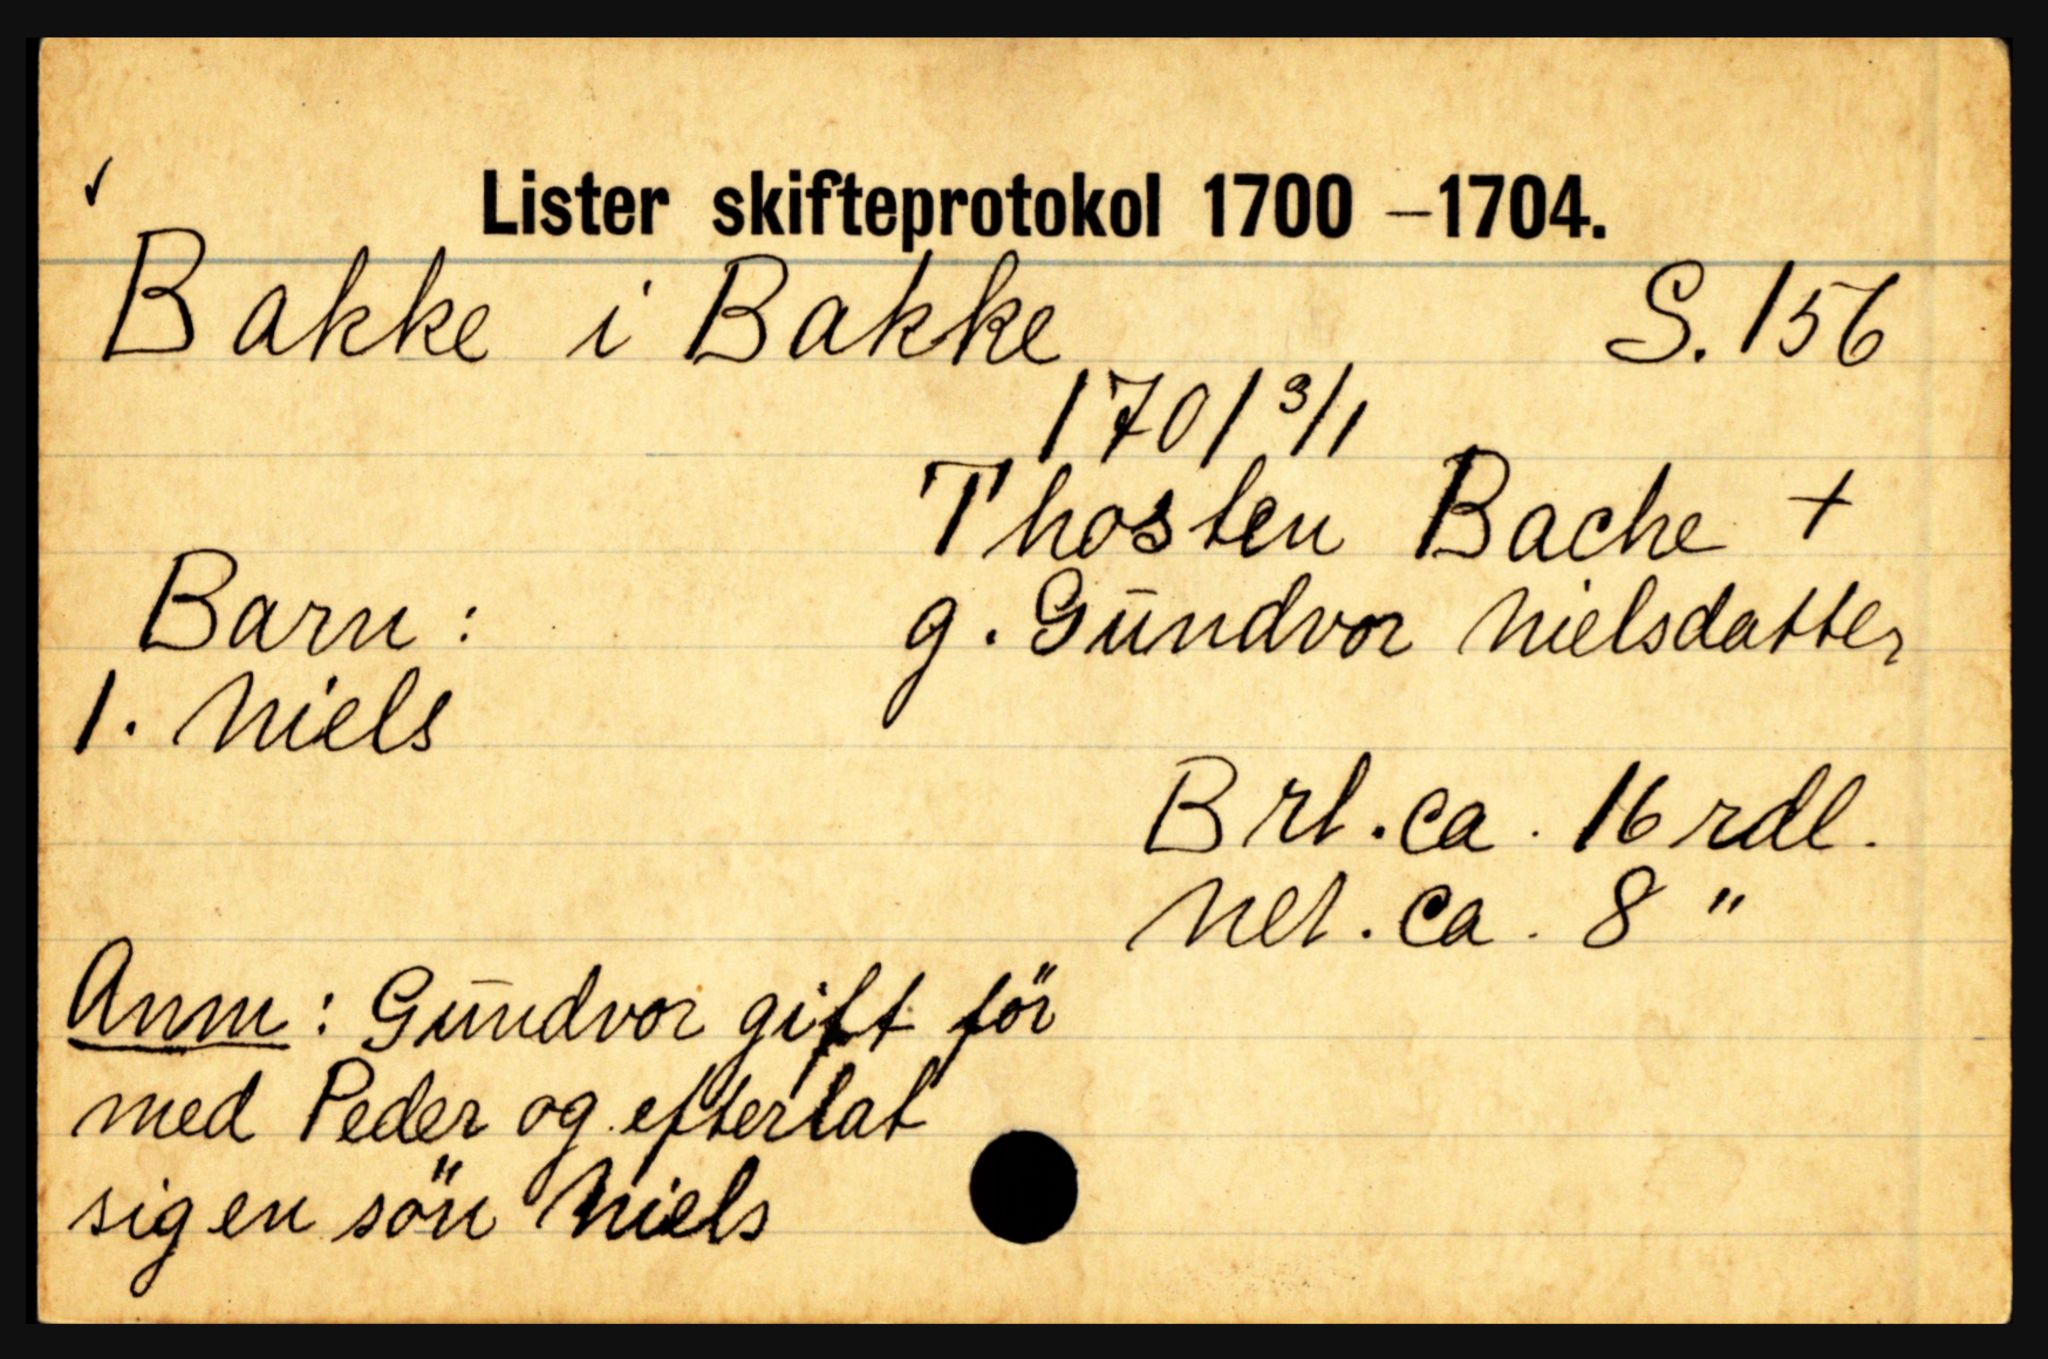 ✓ Lister skifteprotokol 1700 –1704.
Bakke i Bakke S. 156
1701 3/1
Thosten Bache +
Barn: g. Gūndvor Nielsdatter
1. Niels
Brt. ca. 16 rdl.
Net. ca. 8 "
Anm: Gūndvor gift för
med Peder og efterlat
sig en sön Niels